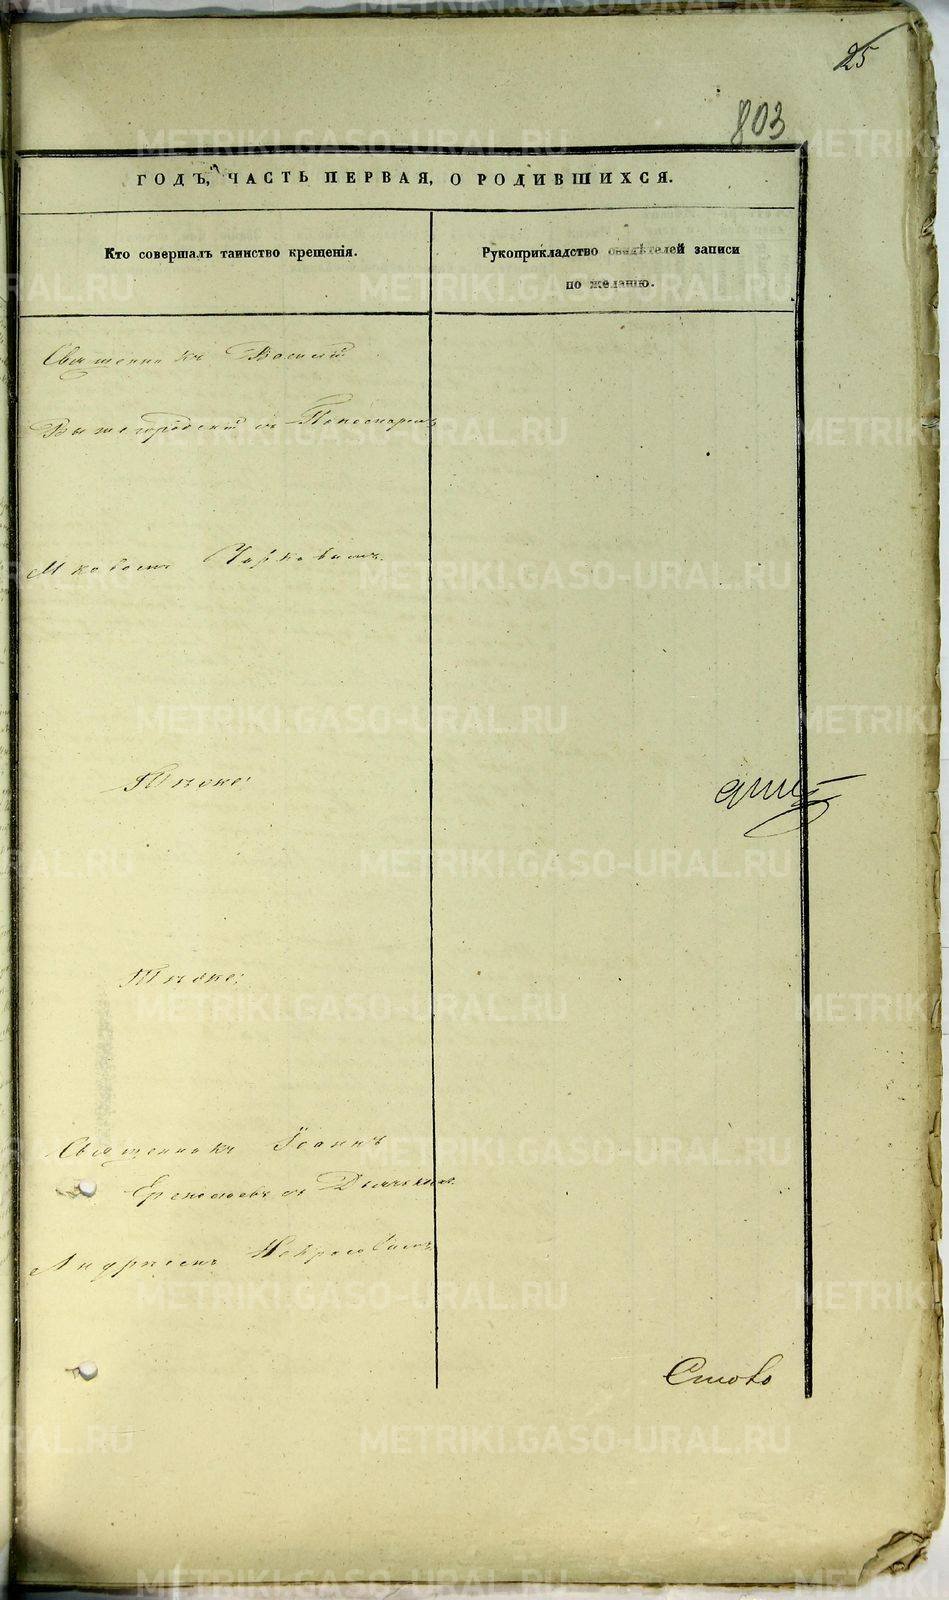 25
803
ГОДЪ, ЧАСТЬ ПЕРВАЯ, О РОДИВШИХСЯ.
Кто совершалъ таинство крещенія.
Рукоприкладство свидѣтелей записи
по желанію.
Священникъ Василій
Вышегородскій съ Пономаремъ
Яковомъ
Тѣже:
Тѣже:
Священникъ Іоаннъ
съ Дьячкомъ
Андреемъ Некрасовымъ
METRIKI.GASO-URAL.RU